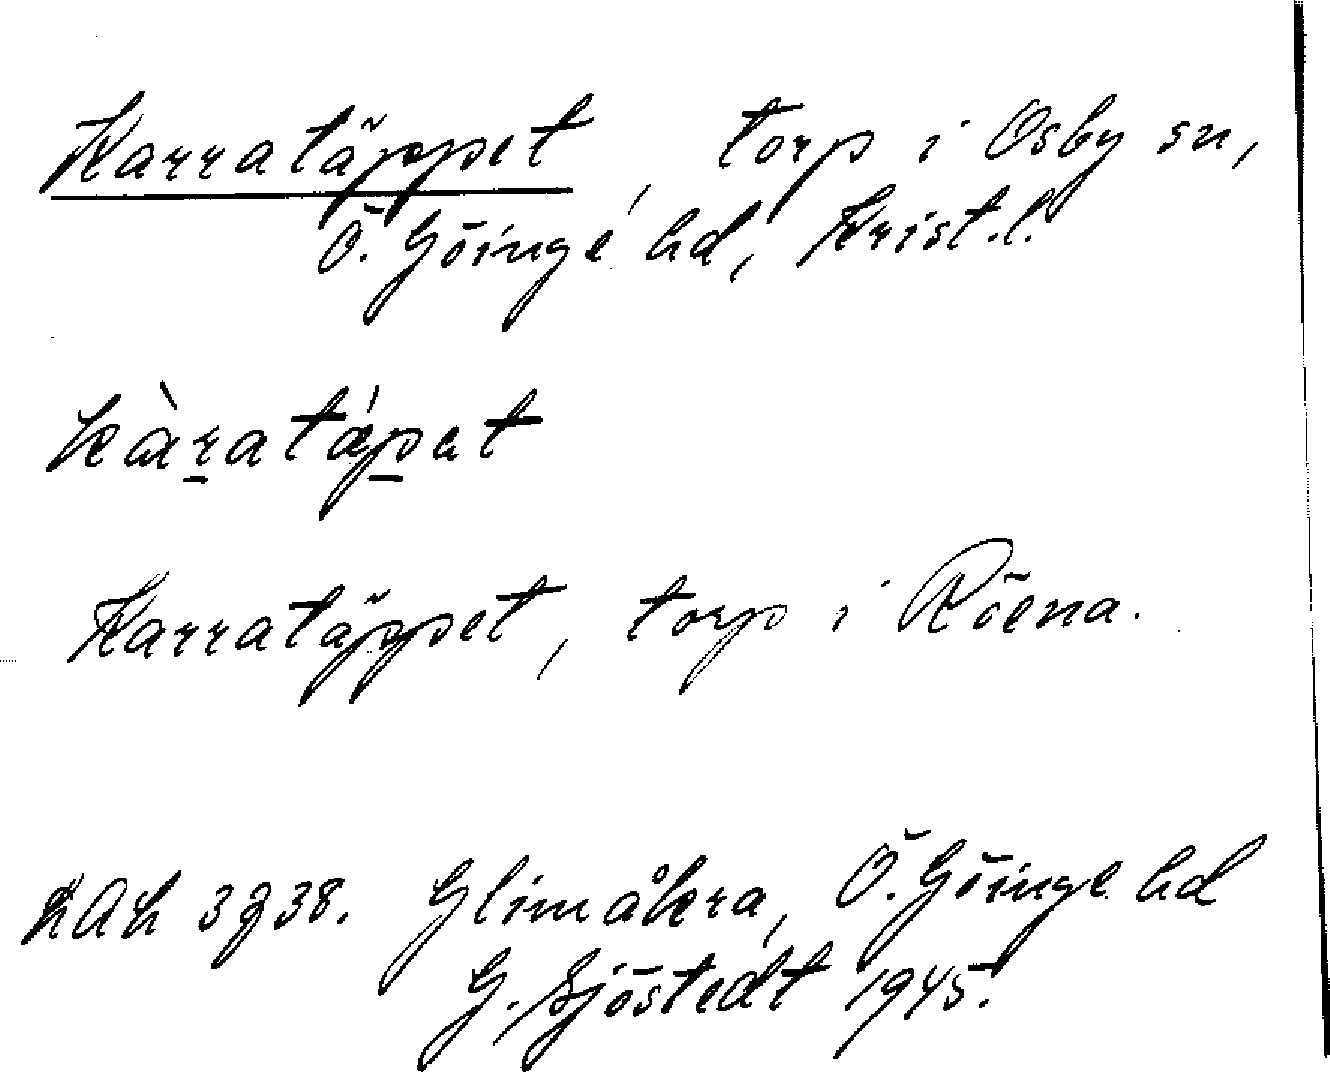 Karratäppet, torp i Osby sn,
Ö. Göinge hd, Krist.l.
kàratǽpat
Karratäppet, torp i Röena.
3938. Glimåkra, Ö. Göinge hd
G. Sjöstedt 1945.